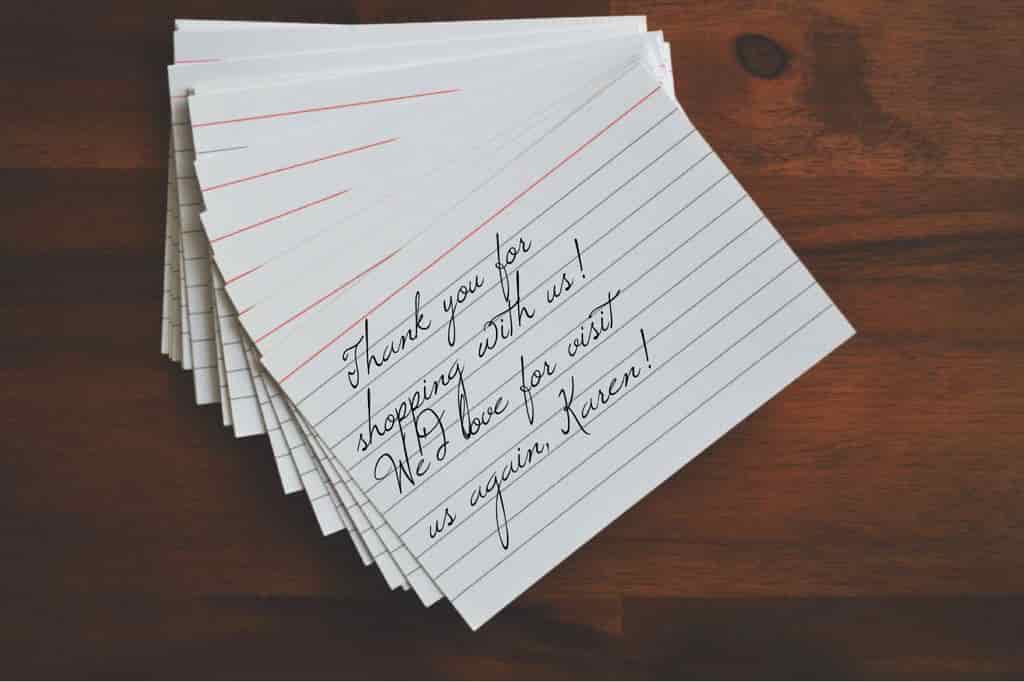 Thank you for
shopping with us!
We'd love for visit
us again, Karen!